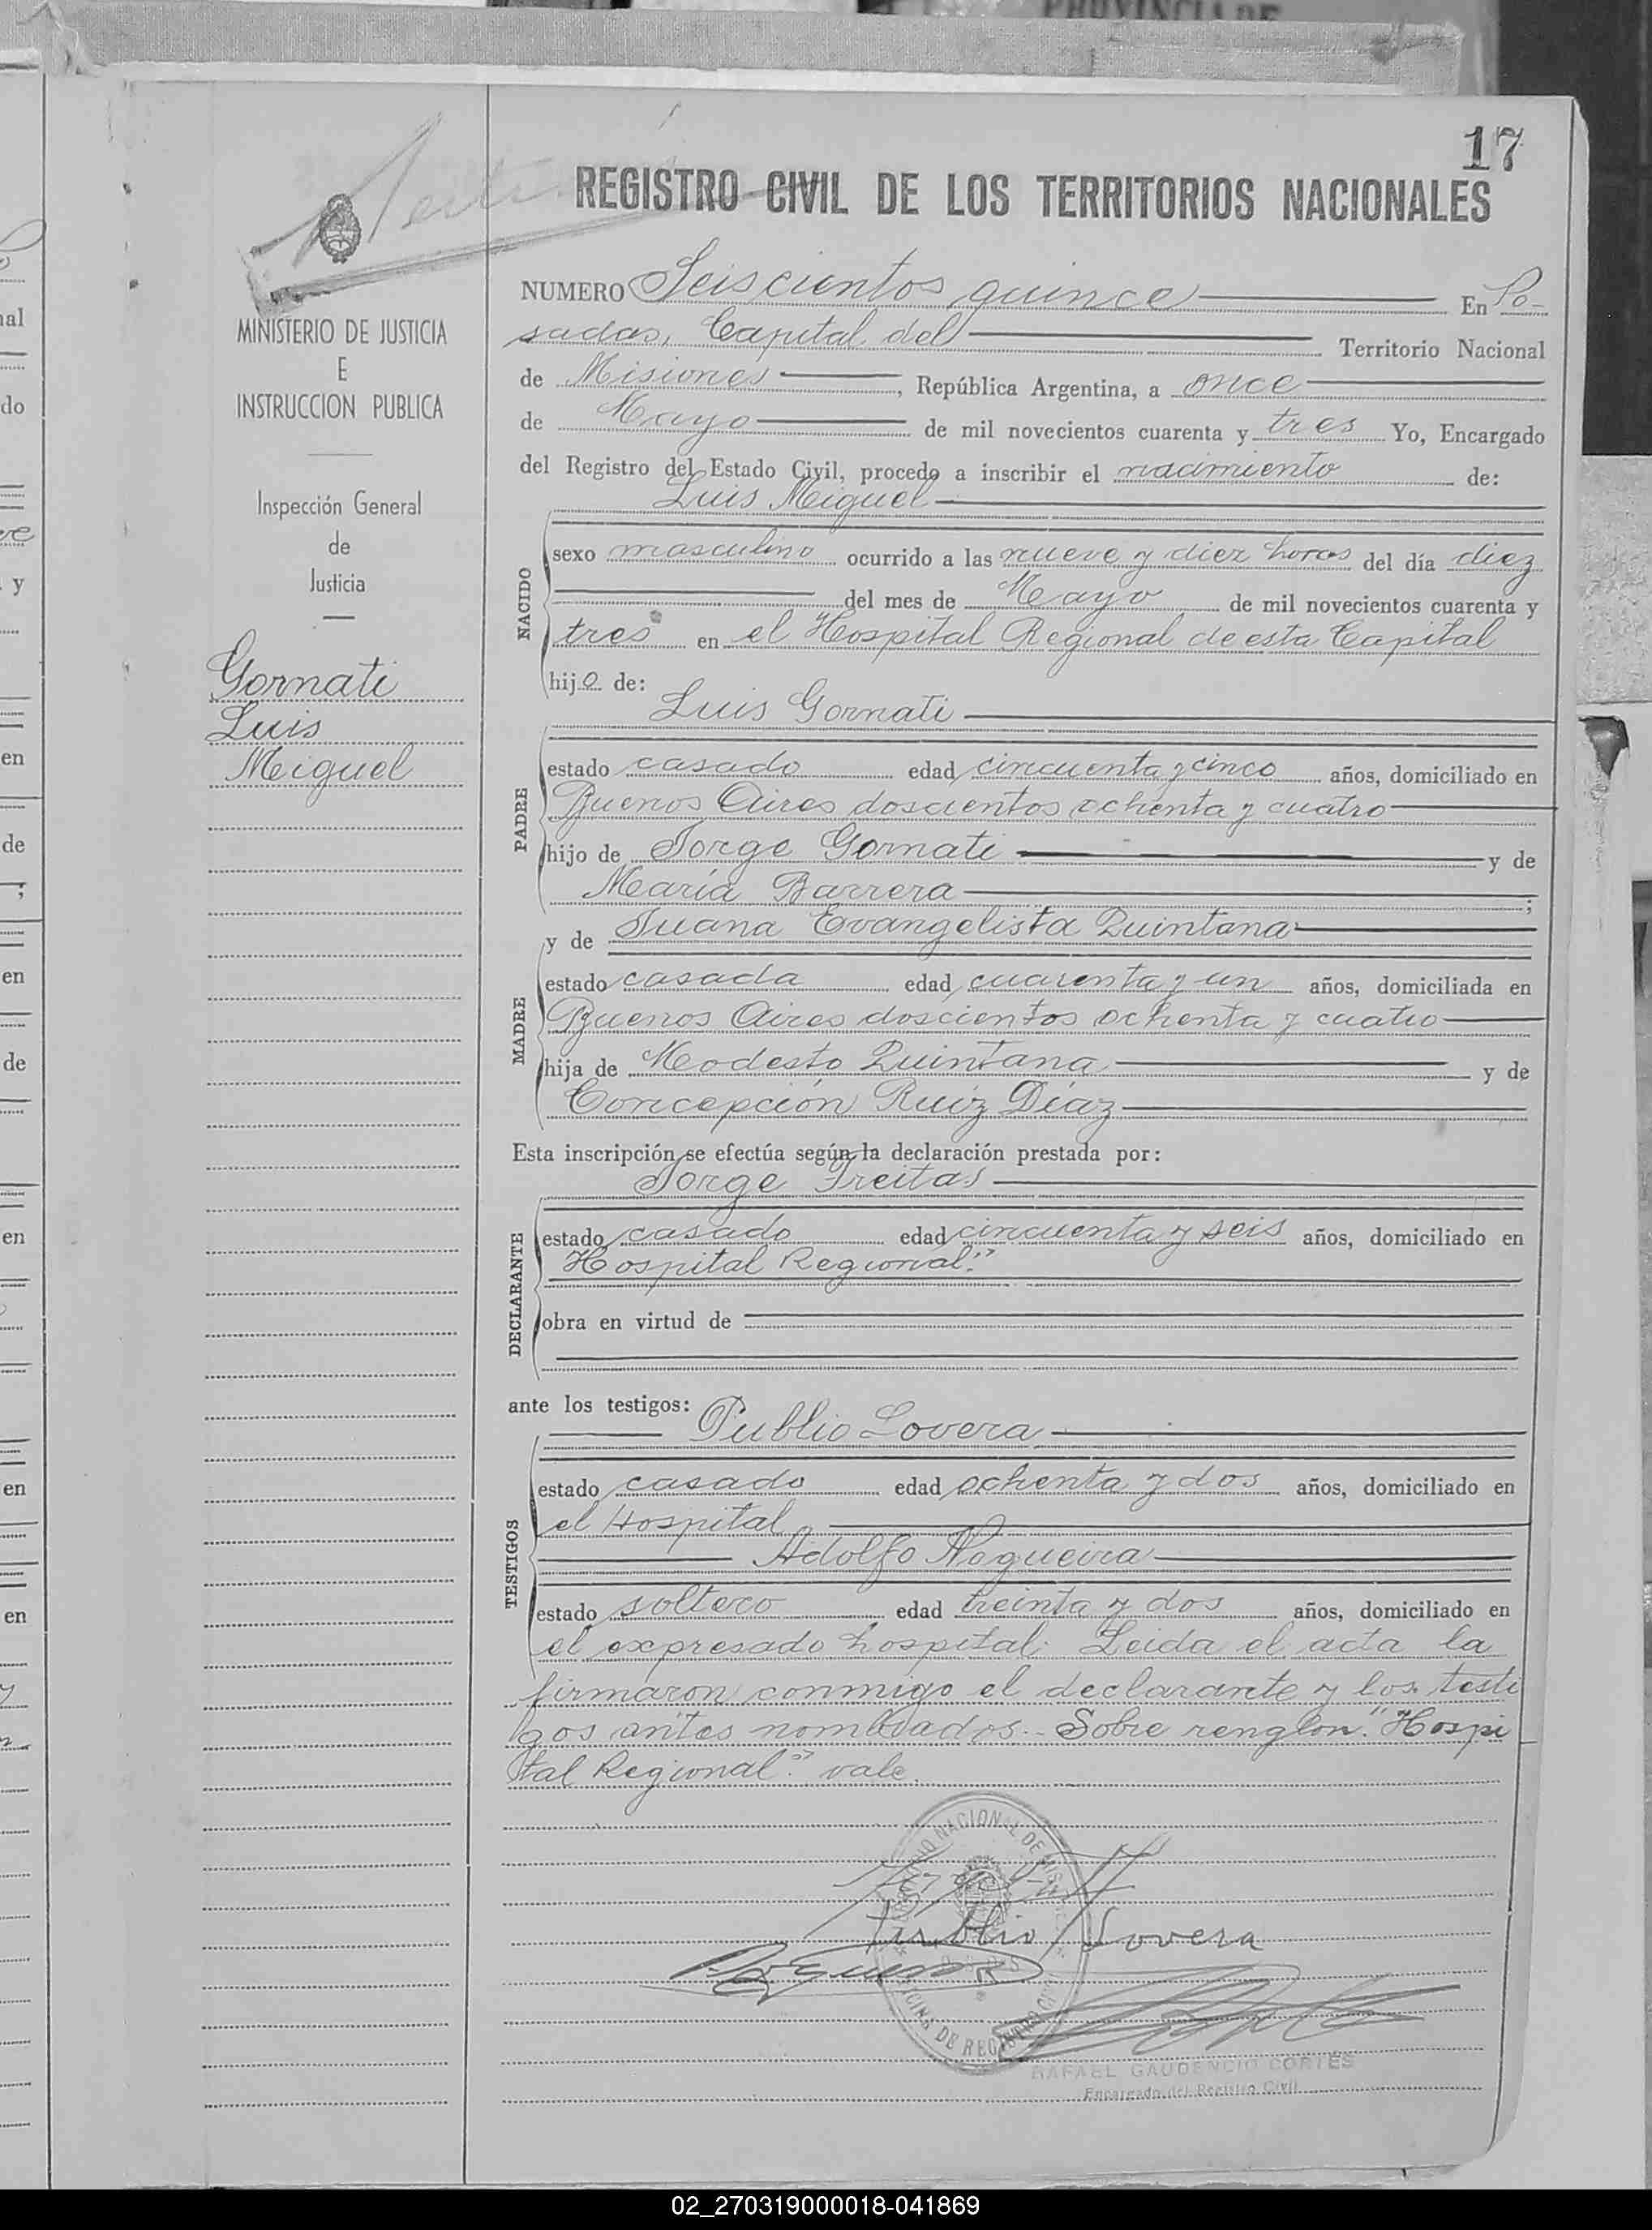 PROVINCIA DE
17
REGISTRO CIVIL DE LOS TERRITORIOS NACIONALES
MINISTERIO DE JUSTICIA
E
INSTRUCCION PUBLICA
Inspección General
de
Justicia
Gornati
Luis
Miguel
NUMERO Seiscientos quince En Po-
sadas, Capital del Territorio Nacional
de Misiones, República Argentina, a once
de Mayo de mil novecientos cuarenta y tres Yo, Encargado
del Registro del Estado Civil, procedo a inscribir el nacimiento de:
Luis Miguel
NACIDO
sexo masculino ocurrido a las nueve y diez horas del día diez
del mes de Mayo de mil novecientos cuarenta y
tres en el Hospital Regional de esta Capital
hijo de:
Luis Gornati
PADRE
estado casado edad cincuenta y cinco años, domiciliado en
Buenos Aires doscientos ochenta y cuatro
hijo de Jorge Gornati y de
María Barrera ;
y de Juana Evangelista Quintana
MADRE
estado casada edad cuarenta y un años, domiciliada en
Buenos Aires doscientos ochenta y cuatro
hija de Modesto Quintana y de
Concepción Ruiz Díaz
Esta inscripción se efectúa según la declaración prestada por:
Jorge Freitas
DECLARANTE
estado casado edad cincuenta y seis años, domiciliado en
Hospital Regional."
obra en virtud de
ante los testigos:
Publio Lovera
TESTIGOS
estado casado edad ochenta y dos años, domiciliado en
el Hospital
Adolfo Nogueira
estado soltero edad treinta y dos años, domiciliado en
el expresado hospital. Leida el acta la
firmaron conmigo el declarante y los testi
gos antes nombrados.- Sobre renglon: "Hospi
tal Regional." vale.
NACIONAL DE MISIONES
OFICINA DE REGISTRO CIVIL
Publio Lovera
RAFAEL GAUDENCIO CORTÉS
Encargado del Registro Civil
02_270319000018-041869